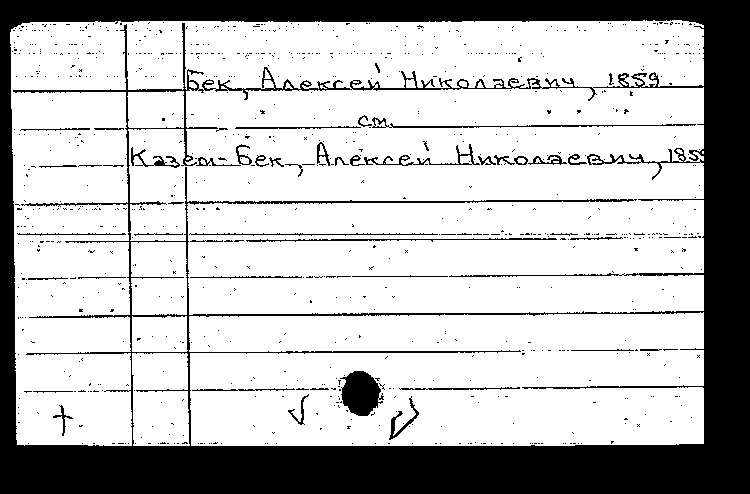 Бек, Алексей Николаевич, 1859.
см.
Казем-Бек, Алексей Николаевич, 1859